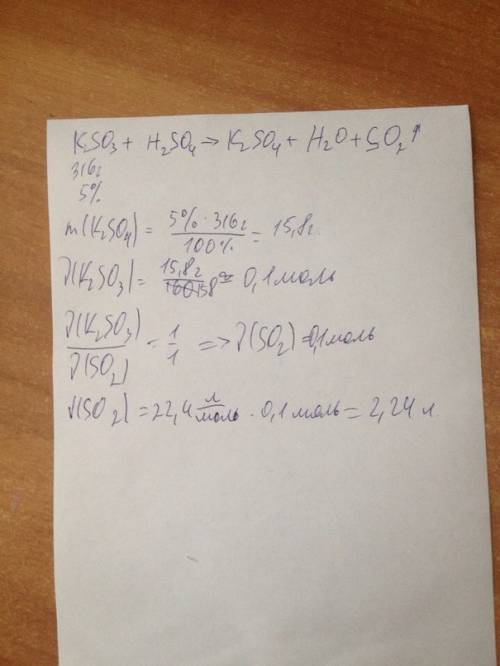 K₂SO₃ + H₂SO₄ → K₂SO₄ + H₂O + SO₂↑
316г
5%
m(K₂SO₄) = 5% · 316г / 100% = 15,8г.
ν(K₂SO₃) = 15,8г / 158 ≈ 0,1 моль
ν(K₂SO₃) / ν(SO₂) = 1 / 1 => ν(SO₂) = 0,1 моль
V(SO₂) = 22,4 л/моль · 0,1 моль = 2,24 л.